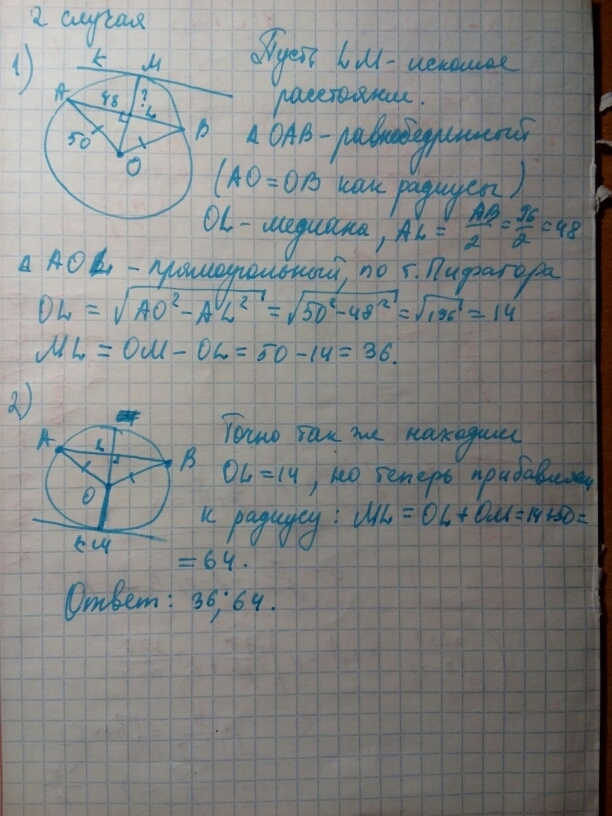 2 случая
1)
К М
А 48 ? L В
50 О
Пусть LM - искомое
расстояни.
Δ OAB - равнобедренный
(AO = OB как радиусы)
OL - медиана, AL = AB/2 = 96/2 = 48
Δ AOL - прямоугольный, по т. Пифагора
OL = √AO² - AL² = √50² - 48² = √196 = 14
ML = OM - OL = 50 - 14 = 36.
2)
А L В
О
К М
Точно так же находим
OL = 14, но теперь прибавляем
к радиусу: ML = OL + OM = 14+50 =
= 64.
Ответ: 36; 64.